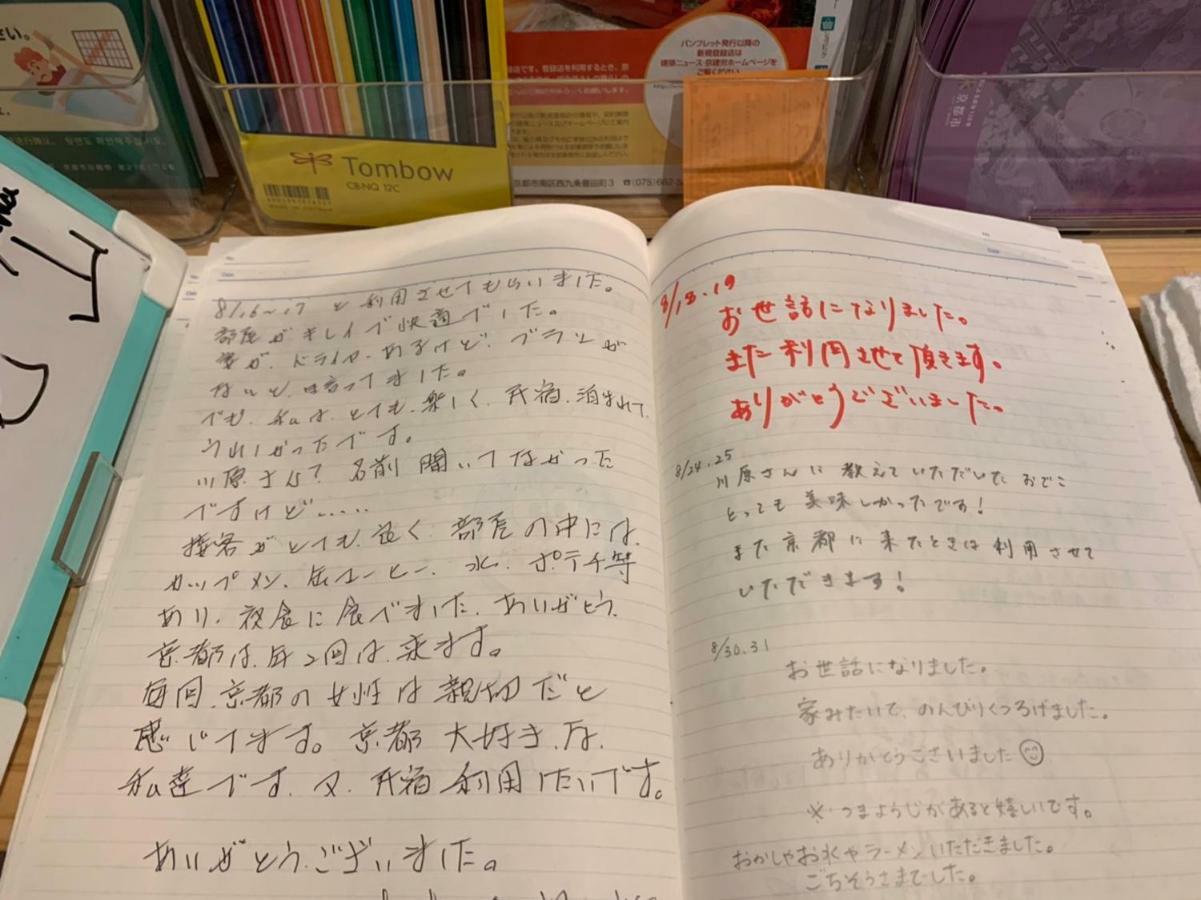 さい。
パンフレット発行以降の
新規登録店は
建築ニュース・京建労ホームページを
ご覧ください
京都市南区西九条豊田町3 ☎(075)662-5
Tombow
CB-NQ 12C
8/16~17 と利用させてもらいました。
部屋がキレイで快適でした。
妻が、ドライヤーあるけど、ブラシが
ないと、は言ってました。
でも、私は、とても、楽しく、民宿、泊まれて、
うれしかったです。
川原さん? 名前聞いてなかった
ですけど.....
接客がとても、良く、部屋の中には、
カップメン、缶コーヒー、水、ポテチ等
あり、夜食に食べました、ありがとう、
京都は、年2回は、来ます。
毎回、京都の女性は親切だと
感じてます。京都大好き、な、
私達です、又、民宿利用したいです。
ありがとうございました。
8/18.19
お世話になりました。
また利用させて頂きます。
ありがとうございました。
8/24.25
川原さんに教えていただいたおでこ
とっても美味しかったです!
また京都に来たときは利用させて
いただきます!
8/30.31
お世話になりました。
家みたいで、のんびりくつろげました。
ありがとうございました
※つまようじがあると嬉しいです。
おかしやお水やラーメンいただきました。
ごちそうさまでした。